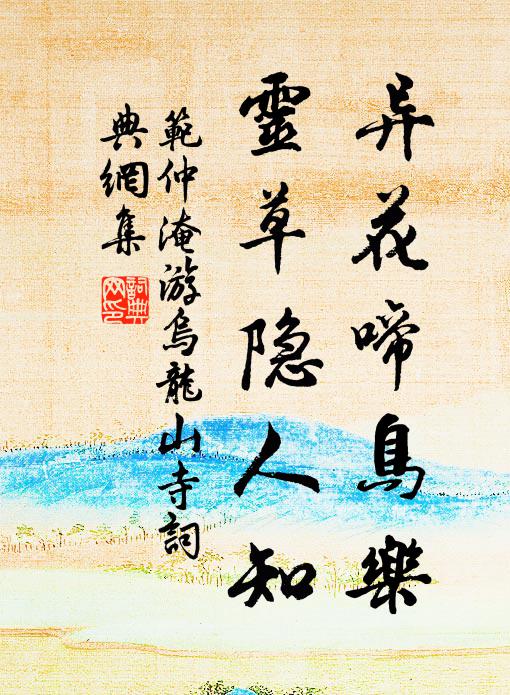 异花啼鳥樂
靈草隐人知
範仲淹游烏龍山寺詞
典網集
詞典
网印